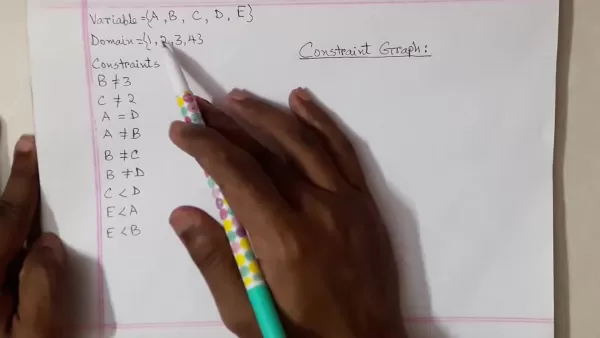 Variable = {A, B, C, D, E}
Domain = {1, 2, 3, 4}
Constraint Graph:
Constraints
B ≠ 3
C ≠ 2
A = D
A ≠ B
B ≠ C
B ≠ D
C < D
E < A
E < B